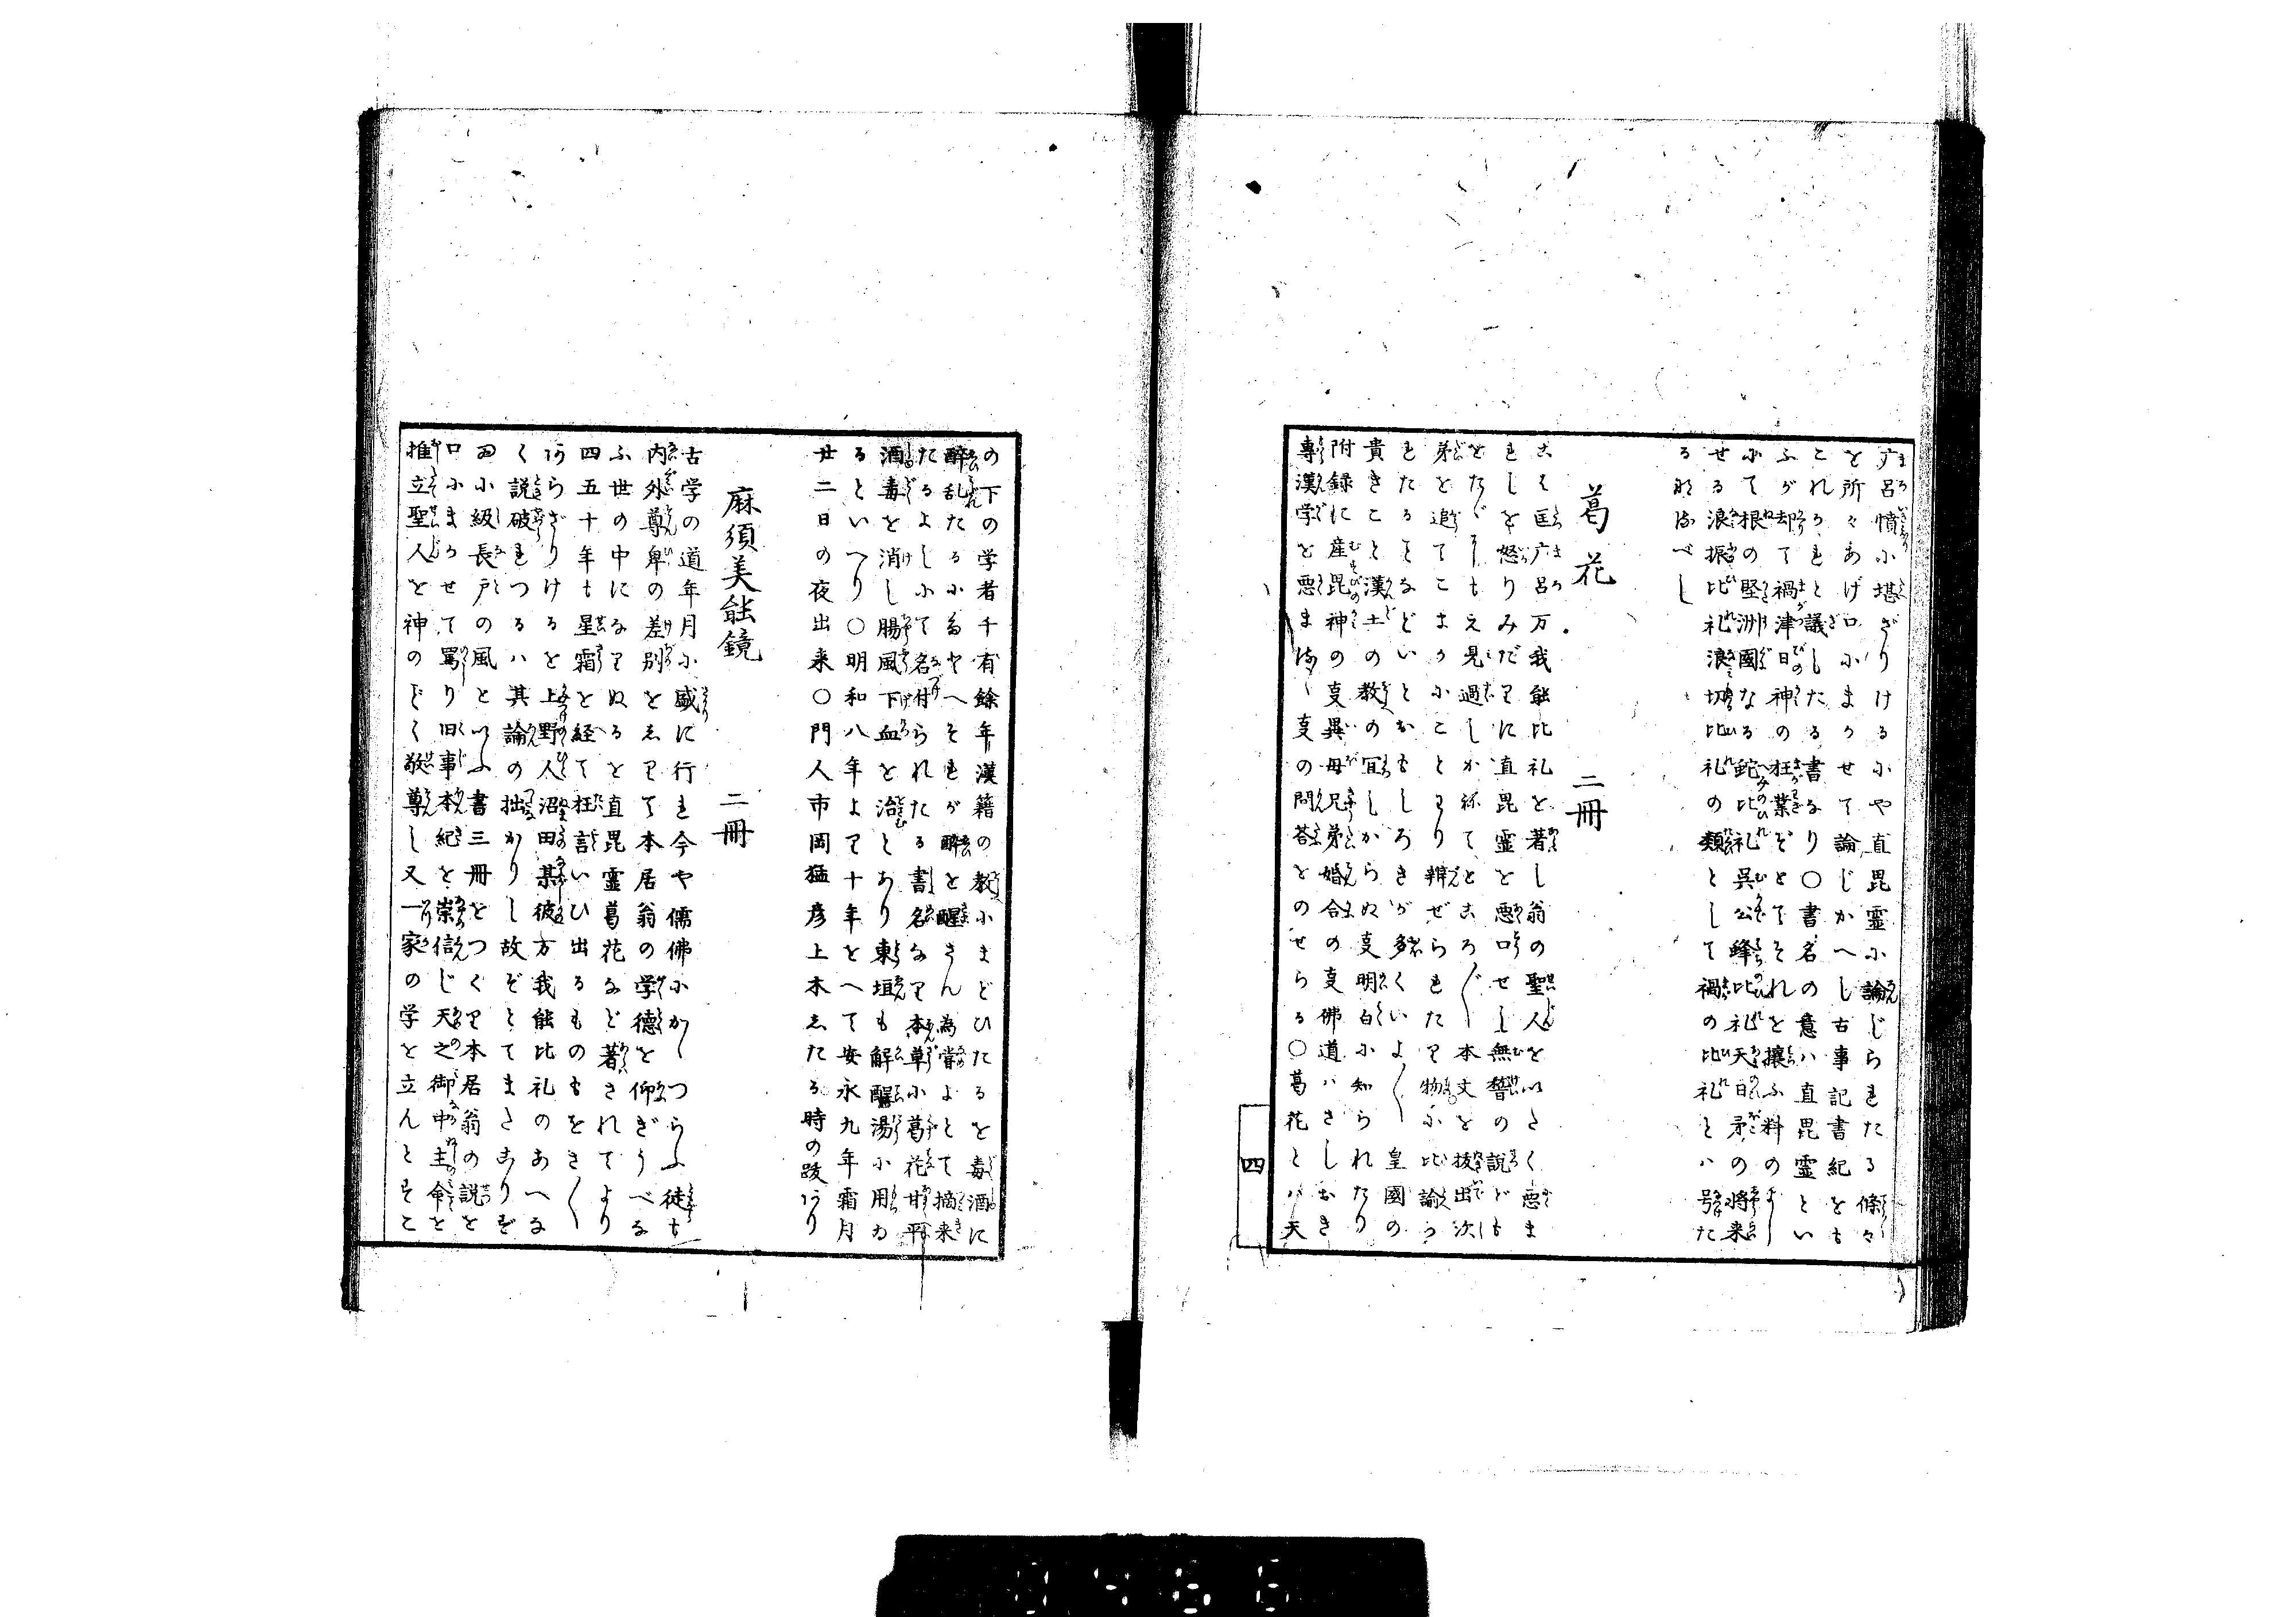 广呂憤小堪ざりけるにや直毘霊小論じられたる條々
を所々あげ口にまかせて論じかへし古事記書紀をも
これかれと議したる書なり〇書名の意ハ直毘霊とい
ふが却て禍津日神の枉業ぞとてそれと攘ふ料の
にて根の堅洲國なる蛇比礼呉公蜂比礼天日矛の将来
せる浪振比礼浪切比礼の類として禍の比礼とハ号た
るなるべし
葛花　二冊
こは匡广呂万我能比礼を著し翁の聖人をいたく悪ま
れしを怒りみだりに直毘霊を悪口せし無讐の説ども
をたゞしもえ見過しかねてところ〴〵本文を抜出次
弟を追てこまかにことわり辨ぜられたり物に比諭う
をたるさまなどいとおもしろきが多くいよ〳〵皇國の
貴きこと漢土の教の宜しからぬ叓明白に知られたり
附録に産毘神の叓異母兄弟婚合の叓佛道ハさしおき
專漢学を悪ます叓の問答をのせらる〇葛花とハ天
の下の学者千有餘年漢籍の教にまどひたるを毒酒に
醉乱たるにたとへそれが醉を醒さん為甞よとて摘来
たるよしにて名付られたる書名なり本草に葛花甘平
酒毒を消し腸風下血を治とあり東垣も解醒湯に用ゐ
るといへり〇明和八年より十年をへて安永九年霜月
廿二日の夜出来〇門人市岡猛彦上木したる時の跋あり
麻須美能鏡　二冊
古学の道年月に盛に行れ今や儒佛にかゝつらふ徒も
内外尊卑の差別をしりて本居翁の学徳を仰ぎうべる
ふ世の中になりぬると直毘霊葛花など著されてより
四五十年も星霜を経て枉言いひ出るものもをさ〳〵
あらざりけるを上野人沼田某彼方我能比礼のあへな
く説破れつるハ其論の拙かりし故ぞとてまたあらりぞ
ゐに級長戸の風といふ書三冊をつくり本居翁の説を
口にまかせて罵り旧事本紀を崇信じ天之御中主命を
推立聖人を神のごく敬尊し又一家の学を立んとそこ
四